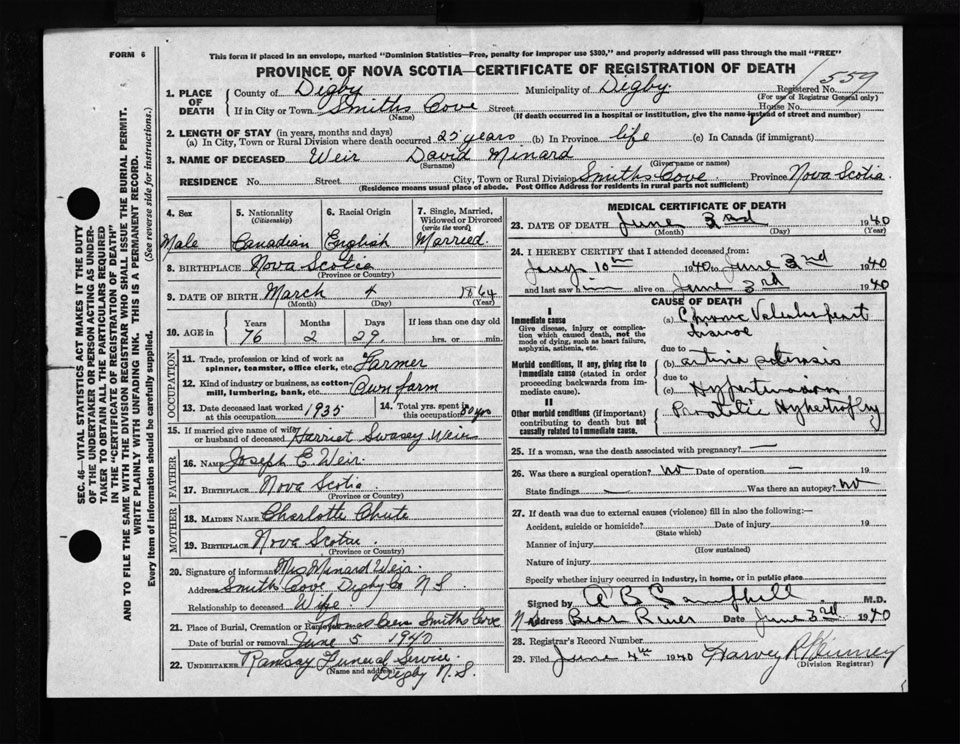 FORM 6
This form if placed in an envelope, marked "Dominion Statistics—Free, penalty for improper use $300," and properly addressed will pass through the mail "FREE"
PROVINCE OF NOVA SCOTIA—CERTIFICATE OF REGISTRATION OF DEATH
559
1. PLACE OF DEATH
County of Digby Municipality of Digby. Registered No.
(For use of Registrar General only)
If in City or Town Smiths Cove Street House No.
(Name) (If death occurred in a hospital or institution, give the name of street and number)
2. LENGTH OF STAY (in years, months and days)
(a) In City, Town or Rural Division where death occurred 25 years (b) In Province life (c) In Canada (if immigrant)
3. NAME OF DECEASED Weir David Minard
(Surname) (Given name or names)
RESIDENCE No. Street City, Town or Rural Division Smiths Cove. Province Nova Scotia
(Residence means usual place of abode. Post Office Address for residents in rural parts not sufficient)
4. Sex Male
5. Nationality (Citizenship) Canadian
6. Racial Origin English
7. Single, Married, Widowed or Divorced (write the word) Married.
8. BIRTHPLACE Nova Scotia
(Province or Country)
9. DATE OF BIRTH March 4 1864
(Month) (Day) (Year)
10. AGE in
Years Months Days If less than one day old
76 2 29. hrs. or min.
OCCUPATION
11. Trade, profession or kind of work as spinner, teamster, office clerk, etc. Farmer
12. Kind of industry or business, as cotton-mill, lumbering, bank, etc. Own farm
13. Date deceased last worked at this occupation 1935
14. Total yrs. spent in this occupation 50 yrs
15. If married give name of wife or husband of deceased Harriet Swasey Weir
FATHER
16. NAME Joseph E. Weir
17. BIRTHPLACE Nova Scotia
(Province or Country)
MOTHER
18. MAIDEN NAME Charlotte Chute
19. BIRTHPLACE Nova Scotia.
(Province or Country)
20. Signature of informant Mrs Minard Weir.
Address Smith Cove Digby Co N.S
Relationship to deceased Wife
21. Place of Burial, Cremation or Removal Smiths Cove
Date of burial or removal June 5 1940
22. UNDERTAKER Ramsay Funeral Service.
(Name and address) Digby N.S.
MEDICAL CERTIFICATE OF DEATH
23. DATE OF DEATH June 3rd 1940
(Month) (Day) (Year)
24. I HEREBY CERTIFY that I attended deceased from:
Jany 10th 1940 to June 3rd 1940
and last saw him alive on June 3rd 1940
CAUSE OF DEATH
I
Immediate cause
Give disease, injury or complication which caused death, not the mode of dying, such as heart failure, asphyxia, asthenia, etc.
(a) Chronic Valvular heart disease
due to
Morbid conditions, if any, giving rise to immediate cause (stated in order proceeding backwards from immediate cause).
(b) arterio sclerosis
due to
(c) Hypertension
II
Other morbid conditions (if important) contributing to death but not causally related to immediate cause.
Prostatic Hypertrophy
25. If a woman, was the death associated with pregnancy? —
26. Was there a surgical operation? no Date of operation — 19
State findings — Was there an autopsy? no
27. If death was due to external causes (violence) fill in also the following:—
Accident, suicide or homicide? Date of injury 19
(State which)
Manner of injury
(How sustained)
Nature of injury
Specify whether injury occurred in industry, in home, or in public place
Signed by A B Campbell M.D.
Address Bear River Date June 3rd 1940
28. Registrar's Record Number
29. Filed June 4th 1940
(Division Registrar)
SEC. 46—VITAL STATISTICS ACT MAKES IT THE DUTY
OF THE UNDERTAKER OR PERSON ACTING AS UNDER-
TAKER TO OBTAIN ALL THE PARTICULARS REQUIRED
IN THE "CERTIFICATE OF REGISTRATION OF DEATH"
AND TO FILE THE SAME WITH THE DIVISION REGISTRAR WHO SHALL ISSUE THE BURIAL PERMIT.
WRITE PLAINLY WITH UNFADING INK. THIS IS A PERMANENT RECORD.
Every item of information should be carefully supplied. (See reverse side for instructions.)